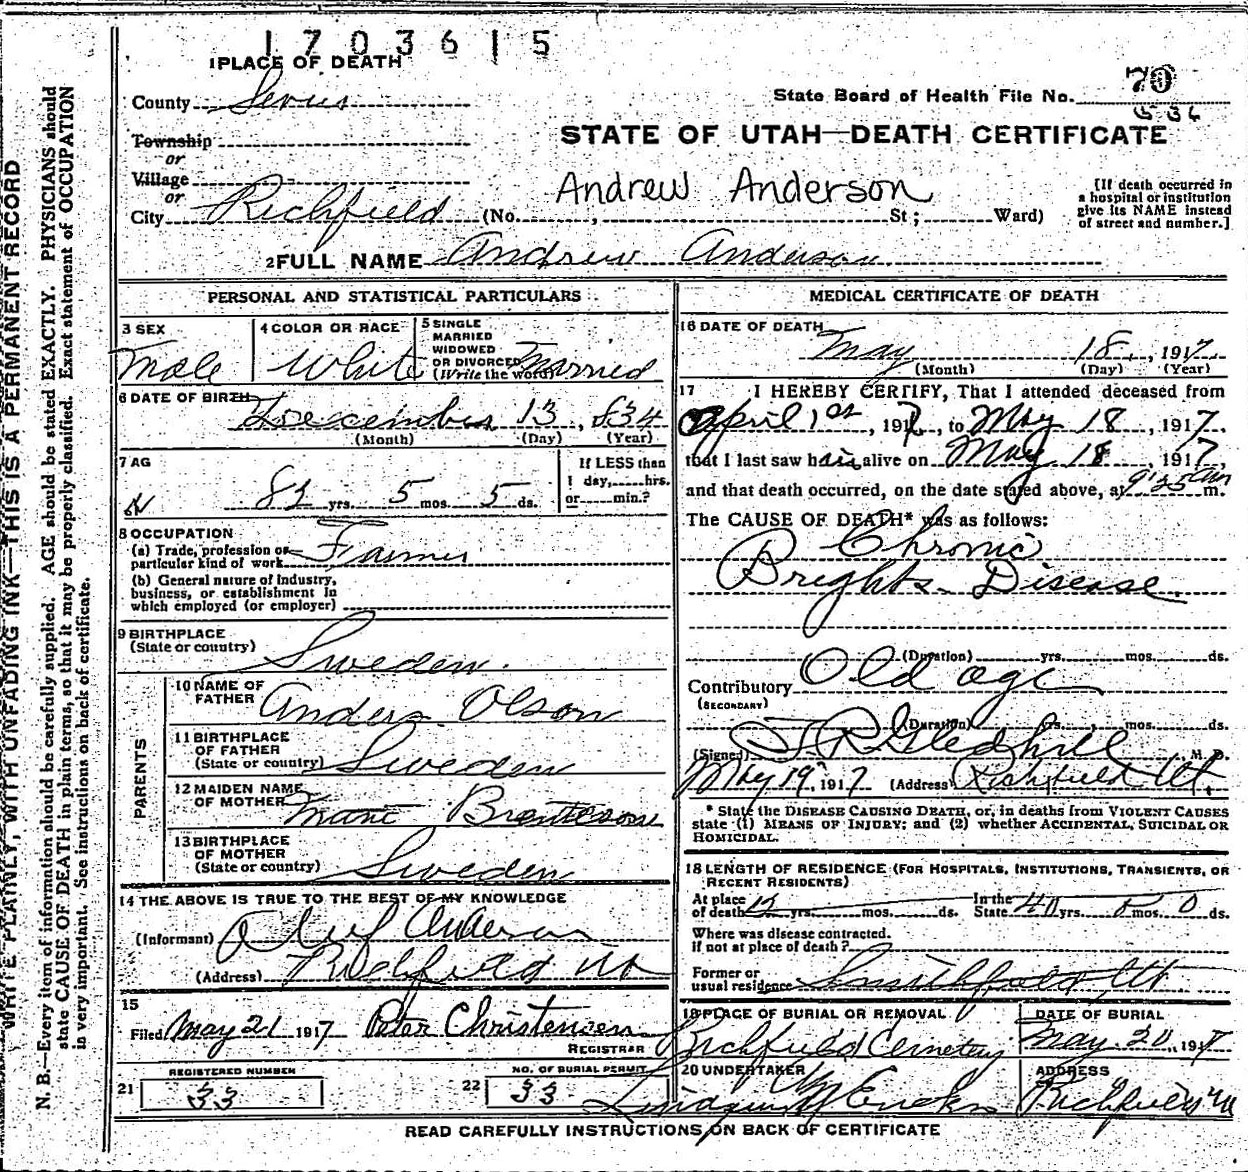 1703615
1 PLACE OF DEATH
County Sevier
Township
or
Village
or
City Richfield (No. , St; Ward)
State Board of Health File No. 70
536
STATE OF UTAH—DEATH CERTIFICATE
Andrew Anderson
[If death occurred in
a hospital or institution
give its NAME instead
of street and number.]
2 FULL NAME Andrew Anderson
PERSONAL AND STATISTICAL PARTICULARS
3 SEX Male
4 COLOR OR RACE White
5 SINGLE
MARRIED
WIDOWED
OR DIVORCED
(Write the word) Married
6 DATE OF BIRTH December 13, 834
(Month) (Day) (Year)
7 AG
82 yrs. 5 mos. 5 ds.
If LESS than
1 day, hrs.
or min.?
8 OCCUPATION
(a) Trade, profession or
particular kind of work Farmer
(b) General nature of Industry,
business, or establishment in
which employed (or employer)
9 BIRTHPLACE
(State or country) Sweden.
PARENTS
10 NAME OF
FATHER Anders Olson
11 BIRTHPLACE
OF FATHER
(State or country) Sweden
12 MAIDEN NAME
OF MOTHER
13 BIRTHPLACE
OF MOTHER
(State or country) Sweden
14 THE ABOVE IS TRUE TO THE BEST OF MY KNOWLEDGE
(Informant) Oluf Anderson
(Address) Richfield Ut
15
Filed May 21 1917 Peter Christensen
REGISTRAR
REGISTERED NUMBER
21 33
NO. OF BURIAL PERMIT
22 33
MEDICAL CERTIFICATE OF DEATH
16 DATE OF DEATH
May 18, 1917
(Month) (Day) (Year)
17 I HEREBY CERTIFY, That I attended deceased from
April 1st, 1917, to May 18, 1917,
that I last saw him alive on May 18, 1917,
and that death occurred, on the date stated above, at 9:25 am m.
The CAUSE OF DEATH* was as follows:
Chronic
Brights Disease
(Duration) yrs. mos. ds.
Contributory Old age
(SECONDARY)
(Duration) yrs. mos. ds.
(Signed) J R Gledhill M. D.
May 19, 1917 (Address) Richfield Ut.
* State the DISEASE CAUSING DEATH, or, in deaths from VIOLENT CAUSES
state (1) MEANS OF INJURY; and (2) whether ACCIDENTAL, SUICIDAL OR
HOMICIDAL.
18 LENGTH OF RESIDENCE (FOR HOSPITALS, INSTITUTIONS, TRANSIENTS, OR
RECENT RESIDENTS)
At place
of death yrs. mos. ds.
In the
State 40 yrs. 0 mos. 0 ds.
Where was disease contracted.
if not at place of death?
Former or
usual residence Smithfield, Ut
19 PLACE OF BURIAL OR REMOVAL
Richfield Cemetery
DATE OF BURIAL
May 20, 1917
20 UNDERTAKER
ADDRESS
Richfield
READ CAREFULLY INSTRUCTIONS ON BACK OF CERTIFICATE
WRITE PLAINLY, WITH UNFADING INK—THIS IS A PERMANENT RECORD
N. B.—Every item of information should be carefully supplied. AGE should be stated EXACTLY. PHYSICIANS should
state CAUSE OF DEATH in plain terms, so that it may be properly classified. Exact statement of OCCUPATION
in very important. See instructions on back of certificate.